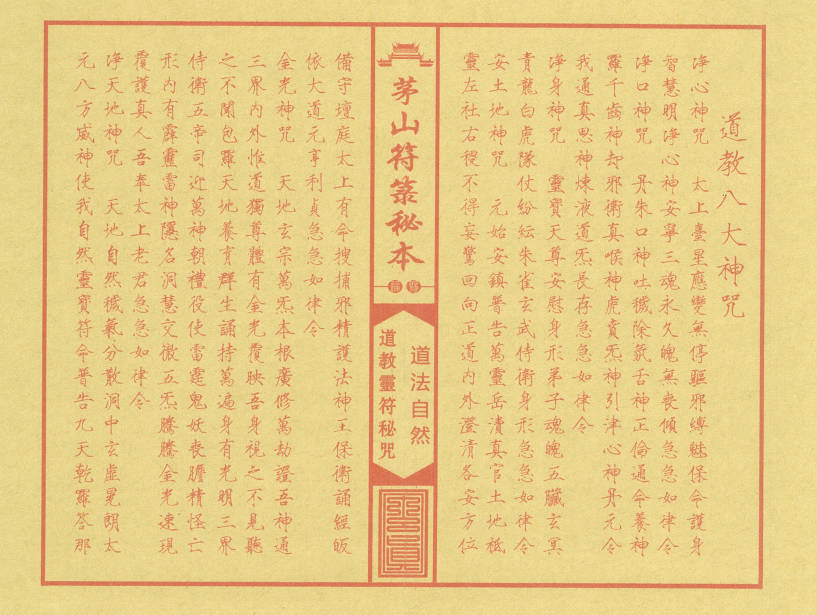 道教八大神咒
淨心神咒　太上臺星應變無停驅邪縛魅保命護身
智慧明淨心神安寧三魂永久魄無喪傾急急如律令
淨口神咒　丹朱口神吐穢除氛舌神正倫通命養神
羅千齒神却邪衛真喉神虎賁炁神引津心神丹元令
我通真思神煉液道炁長存急急如律令
淨身神咒　靈寶天尊安慰身形弟子魂魄五臟玄冥
青龍白虎隊仗紛紜朱雀玄武侍衛身形急急如律令
安土地神咒　元始安鎮普告萬靈岳瀆真官土地祗
靈左社右稷不得妄驚回向正道內外澄清各安方位
茅山符箓秘本
道法自然
道教靈符秘咒
備守壇庭太上有命搜捕邪精護法神王保衛誦經皈
依大道元亨利貞急急如律令
金光神咒　天地玄宗萬炁本根廣修萬劫證吾神通
三界內外惟道獨尊體有金光覆映吾身視之不見聽
之不聞包羅天地養育群生誦持萬遍身有光明三界
侍衛五帝司迎萬神朝禮役使雷霆鬼妖喪膽精怪亡
形內有霹靂雷神隱名洞慧交徹五炁騰騰金光速現
覆護真人吾奉太上老君急急如律令
淨天地神咒　天地自然穢氣分散洞中玄虛晃朗太
元八方威神使我自然靈寶符命普告九天乾羅答那